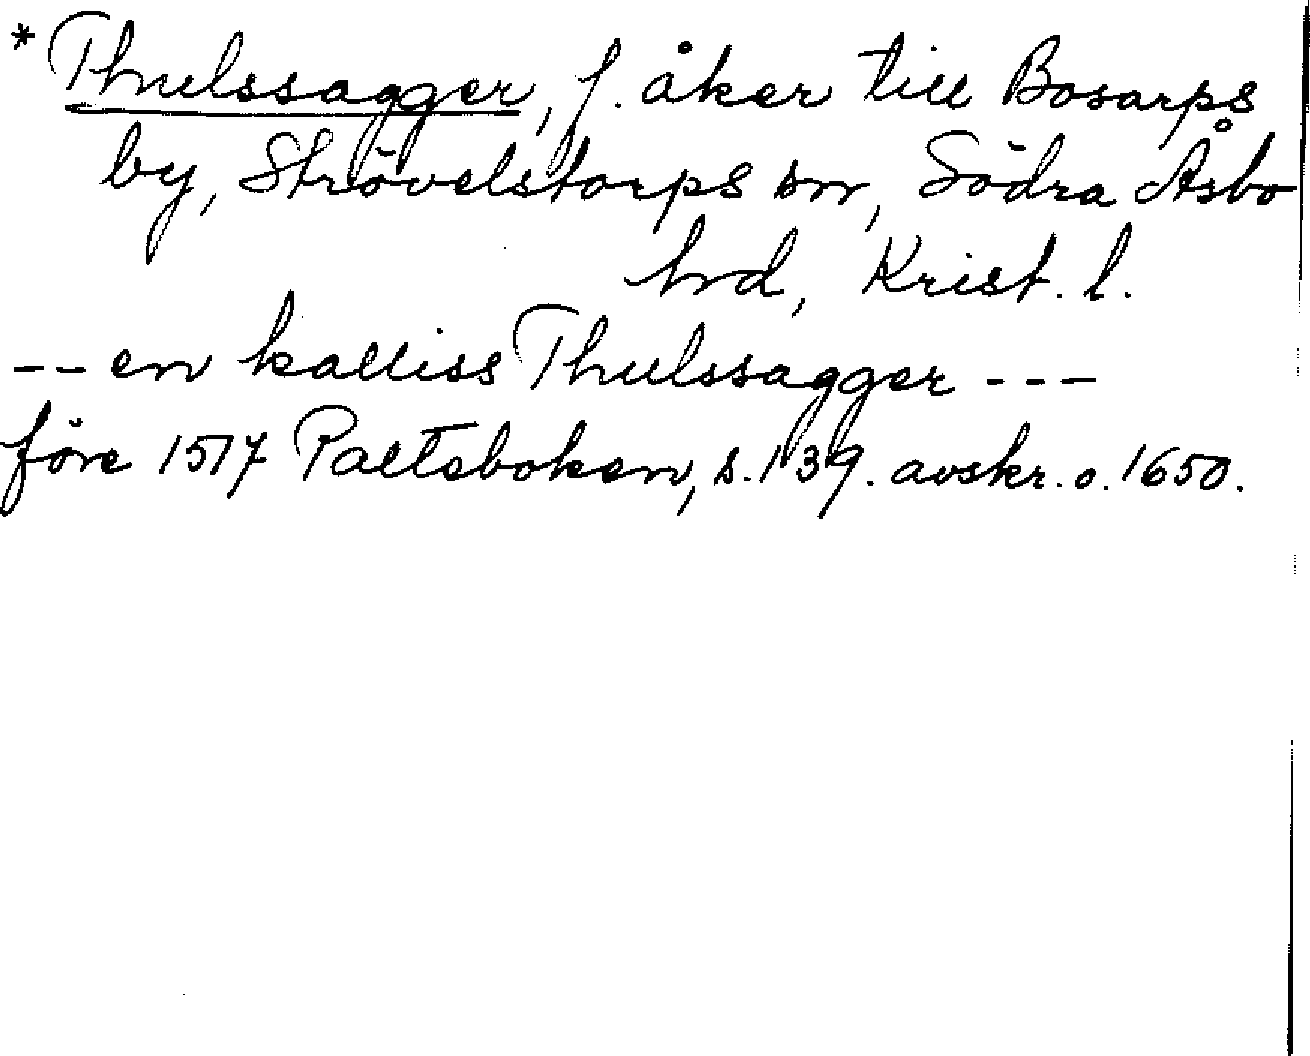 * Thulssagger, f. åker till Bosarps
by, Strövelstorps sn, Södra Åsbo
hrd, Krist. l.
-- en kalliss Thulssagger ---
före 1517 Paltsboken, s. 139. avskr. o. 1650.